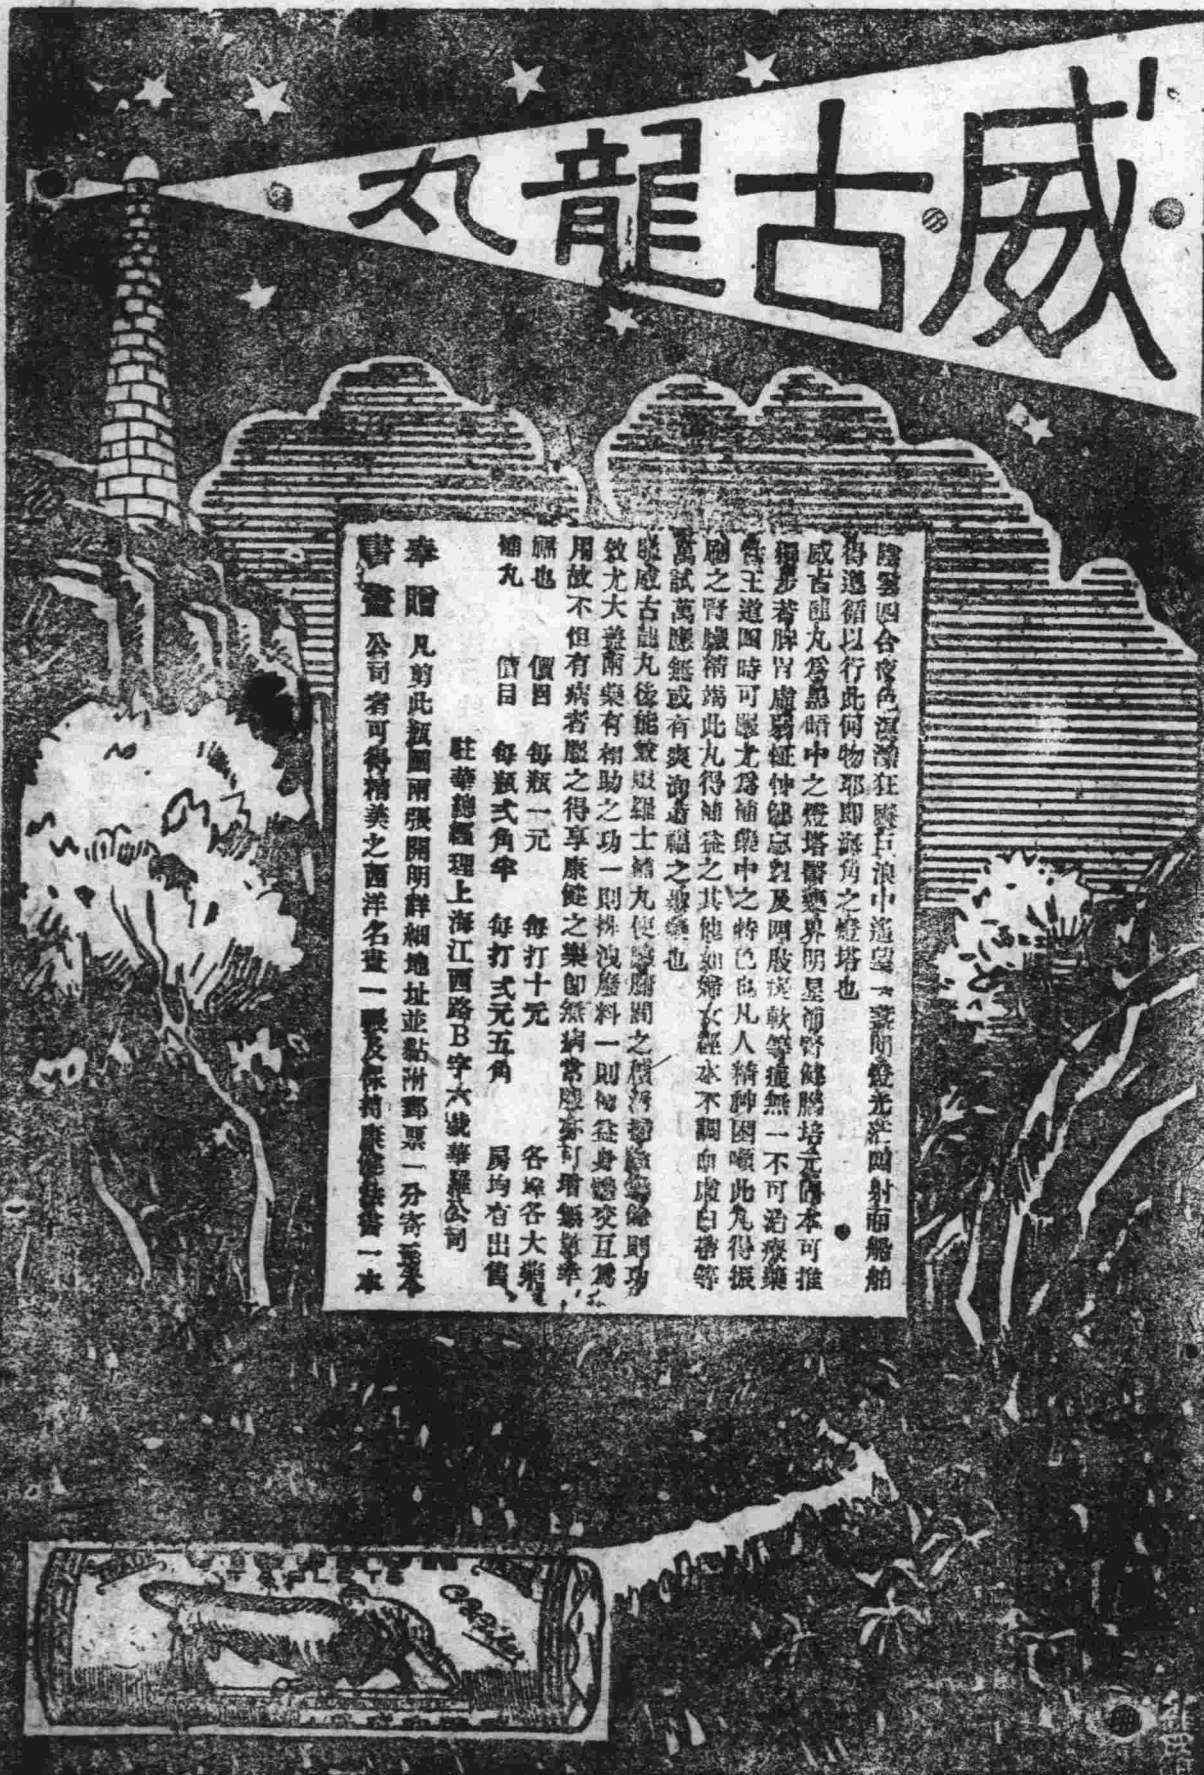 威古龍丸
陰雲四合夜色溟濛狂飈巨浪中遙望一盞明燈光茫四射而船舶
得遵循以行此何物耶即海角之燈塔也
威古龍丸爲黑暗中之燈塔醫藥界明星補腎健腦培元固本可推
獨步若脾胃虛弱怔忡健忘以及四肢痠軟等症無一不可治療藥
性王道四時可服尤爲補藥中之特色也凡人精神困頓此丸得振
刷之腎臟稍端此丸得補益之其他如婦女經水不調血虛白帶等
萬試萬應無或有爽洵造福之聖藥也
服威古龍丸後能兼服羅士補丸使臟腑間之積污掃除無餘則功
效尤大蓋兩藥有相助之功一則排洩廢料一則補益身體交互爲
用故不但有病者服之得享康健之樂卽無病常服亦可增無量幸
福也 價目 每瓶一元 每打十元 各埠各大藥
補丸 價目 每瓶弍角半 每打弍元五角 房均有出售
駐華總經理上海江西路B字六號華羅公司
奉贈 凡剪此瓶圖兩張開明詳細地址並黏附郵票一分寄至本
書畫 公司者可得精美之西洋名畫一幀及保持康健法書一本